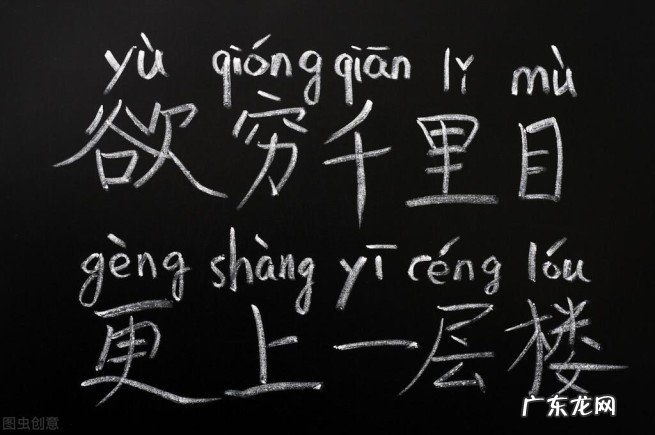 yù qióng qiān lǐ mù
欲穷千里目
gèng shàng yī céng lóu
更上一层楼
图虫创意
广东龙网